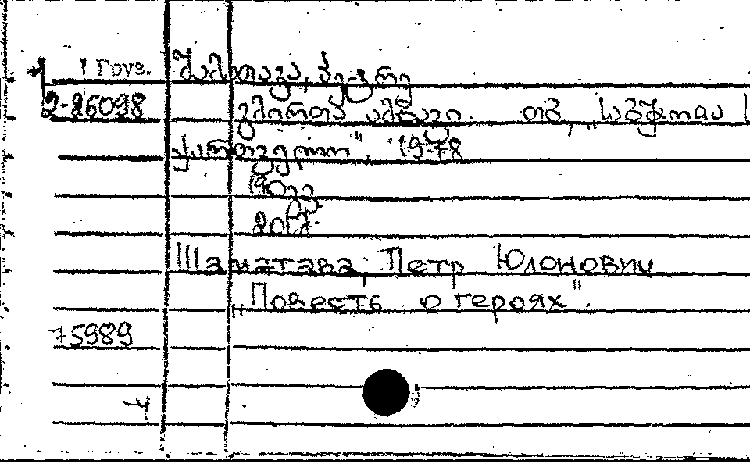 1 Груз. შამათავა, პეტრე
2-26098 გმირთა ამბავი. თბ., „საბჭოთა
საქართველო", 1978
190გვ
20სმ.
Шаматава, Петр Юлонович
„Повесть о героях".
75989